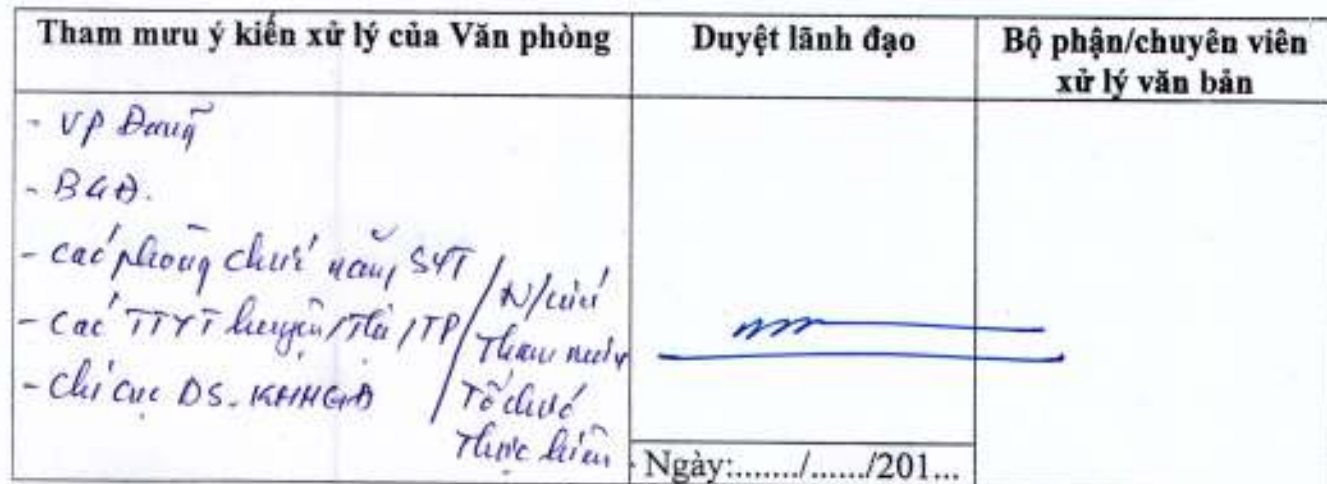 Tham mưu ý kiến xử lý của Văn phòng
Duyệt lãnh đạo
Bộ phận/chuyên viên
xử lý văn bản
- VP Đảng
- BGĐ.
- Các phòng chức năng SYT
- Các TTYT huyện/Thị/TP
- Chi cục DS-KHHGĐ
N/cứu
Tham mưu
Tổ chức
Thực hiện
Ngày:......./......./201...